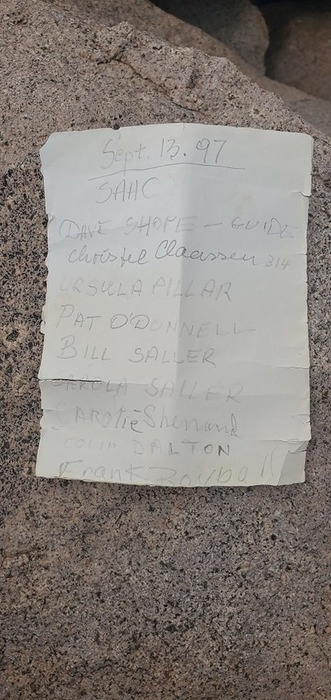 Sept. 13. 97
SAAC
DAVE SHOPE - GUIDE
Christel Claassen 314
URSULA PILLAR
PAT O'DONNELL
BILL SALLER
CAROLA SALLER
COLIN DALTON
Frank